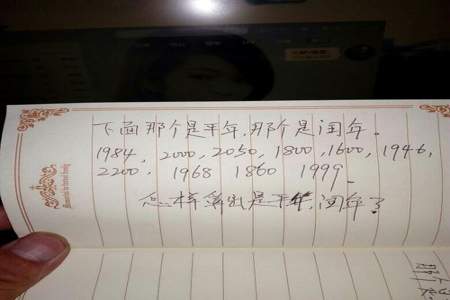 下面那个是平年,那个是闰年.
1984, 2000, 2050, 1800, 1600, 1946,
2200, 1968 1860 1999.
怎样算出是平年,闰年了